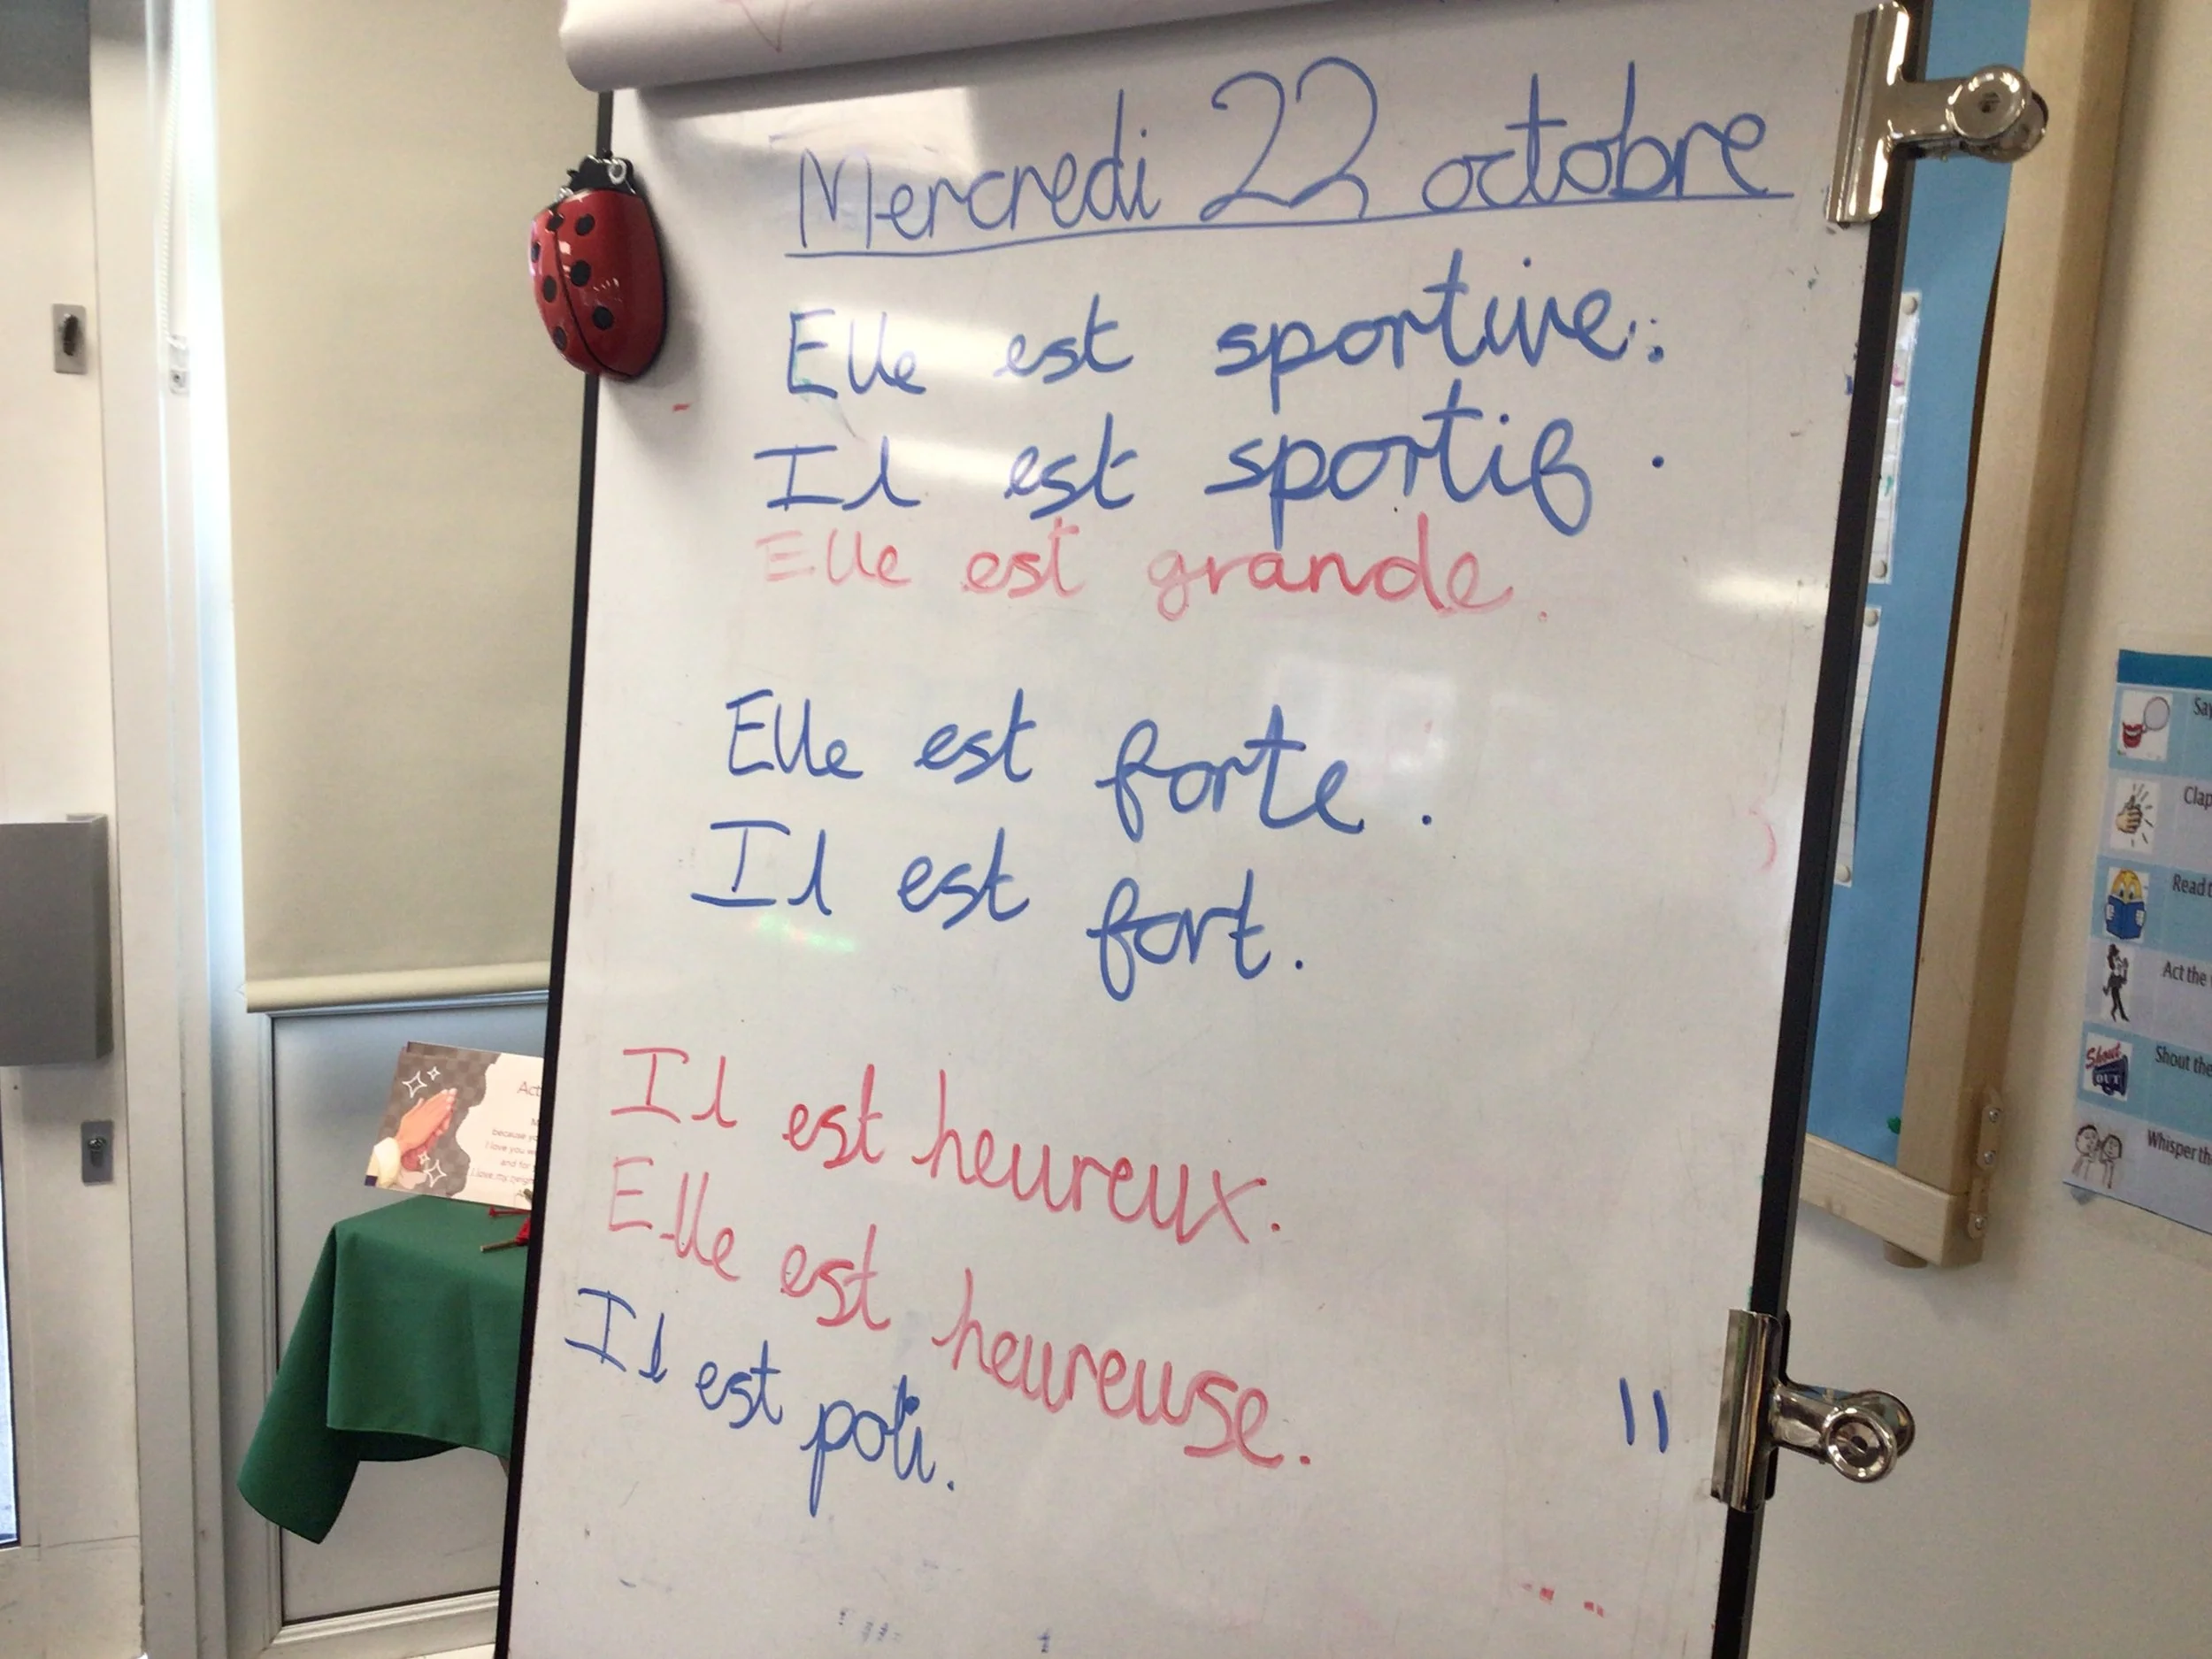 Mercredi 22 octobre
Elle est sportive.
Il est sportif.
Elle est grande.
Elle est forte.
Il est fort.
Il est heureux.
Elle est heureuse.
Il est poli.
Act
because
I love you
and for
I love my neigh
Say
Clap
Read t
Act the
Shout OUT
Shout the
Whisper th